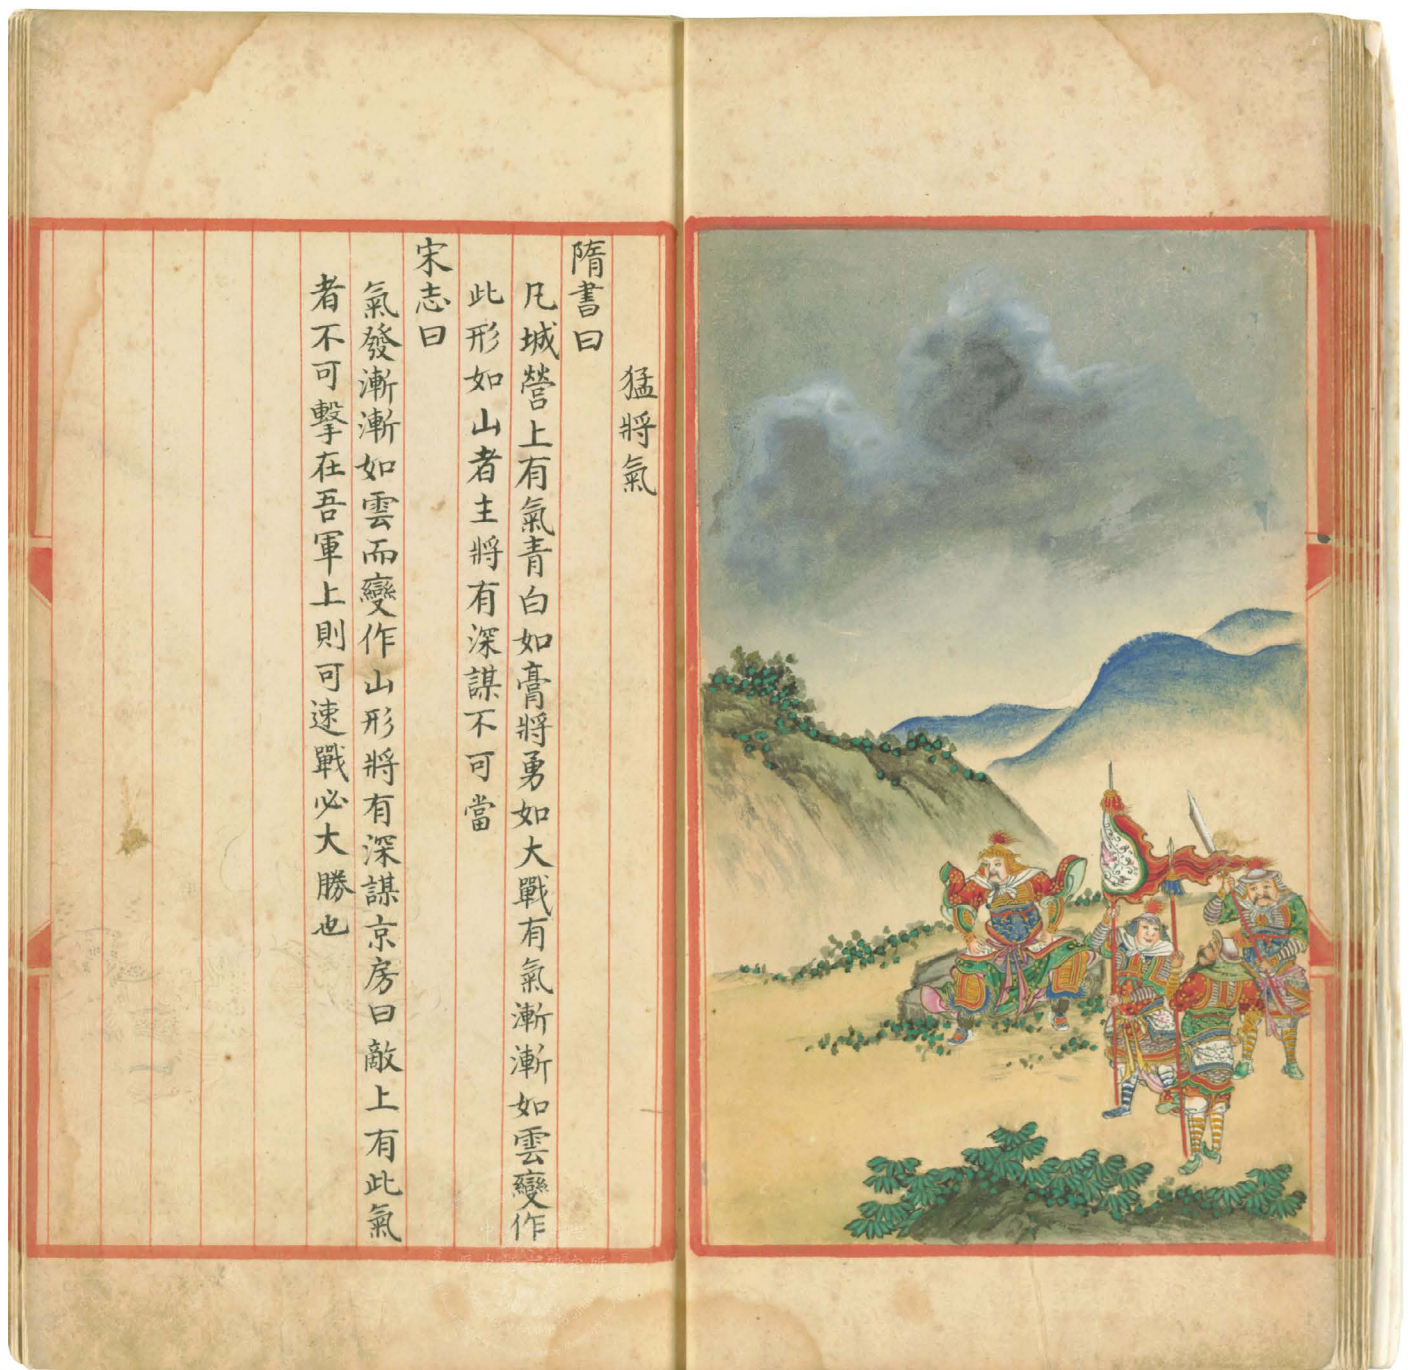 猛將氣
隋書曰
凡城營上有氣青白如膏將勇如大戰有氣漸漸如雲變作
此形如山者主將有深謀不可當
宋志曰
氣發漸漸如雲而變作山形將有深謀京房曰敵上有此氣
者不可擊在吾軍上則可速戰必大勝也